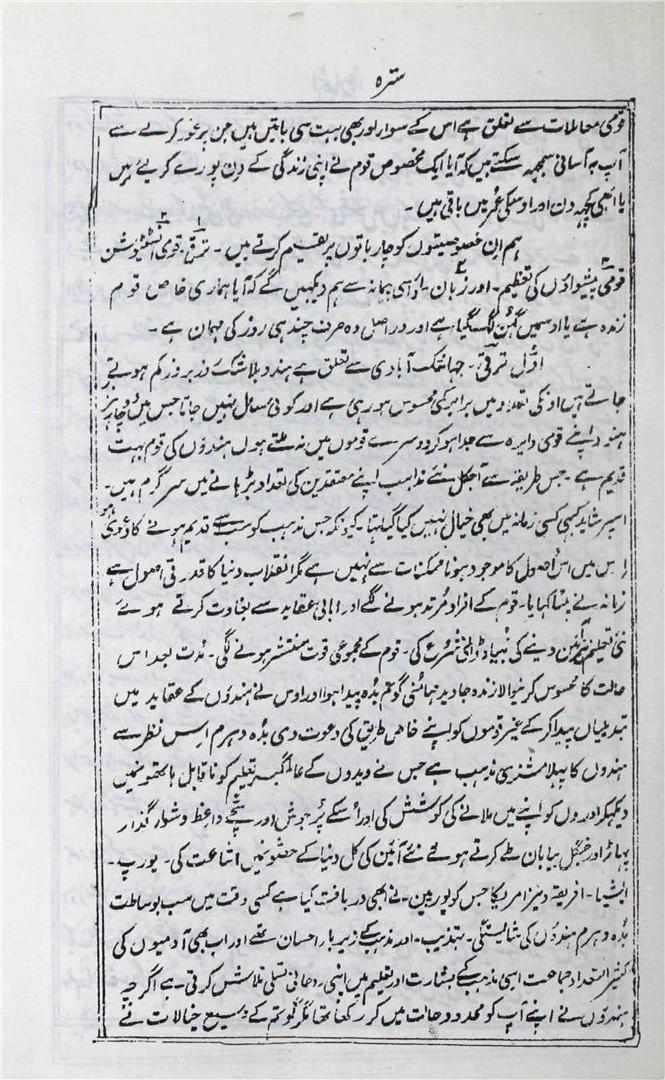 سترہ
قومی معاملات سے تعلق ہے اس کے سوا اور بھی بہت سی باتیں ہیں جن پر غور کرنے سے
آپ بہ آسانی سمجہہ سکتے ہیں کہ آیا ایک مخصوص قوم نے اپنی زندگی کے دن پورے کر لیے ہیں
یا ابھی کچہہ دن اور اوسکی عمر میں باقی ہیں۔
ہم ان خصوصیتوں کو چار باتوں پر تقسیم کرتے ہیں۔ ۱ ترقی۔ ۲ قومی انسٹیٹیوشن
۳ قومی پیشواؤں کی تنظیم۔ اور ۴ زبان۔ اور اسی پیمانہ سے ہم دیکھیں گے کہ آیا ہماری خاص قوم
زندہ ہے یا اوسمیں گھن لگ گیا ہے اور دراصل وہ صرف چند ہی روز کی مہمان ہے۔
اوّل ترقی۔ جہانتک آبادی سے تعلق ہے ہندو بلا شک روز بروز کم ہوتے
جاتے ہیں انکی تعداد میں برابر کمی محسوس ہو رہی ہے اور کوئی سال نہیں جاتا جس میں دو چار ہزار
ہندو اپنے قومی دایرہ سے جدا ہو کر دوسرے قوموں میں نہ ملتے ہوں ہندوؤں کی قوم بہت
قدیم ہے۔ جس طریقہ سے آجکل نئے نئے مذاہب اپنے معتقدین کی تعداد بڑہانے میں سرگرم ہیں۔
اسپر شاید کبھی کسی زمانہ میں بھی خیال نہیں کیا گیا تھا۔ کیونکہ جس مذہب کو سب سے قدیم ہونے کا دعویٰ ہو
اس میں اس اصول کا موجود ہونا ممکنات سے نہیں ہے مگر انقلاب دنیا کا قدرتی اصول ہے
زمانہ نے پلٹا کہایا۔ قوم کے افراد مُرتد ہونے لگے اور ابائی عقاید سے بغاوت کرتے ہوئے
نئی تعلیم و تلقین دینے کی بنیاد ڈالنی شروع کی۔ قوم کے مجموعی قوت منتشر ہونے لگی۔ مدت بعد اس
حالت کا محسوس کرنیوالا زندہ جاوید مہامُنی گوتم بدہ پیدا ہوا اور اوس نے ہندؤں کے عقاید میں
تبدیلیاں پیدا کر کے غیر قوموں کو اپنے خاص طریق کی دعوت دی بدہ دہرم اس نظر سے
ہندوں کا پہلا مشنری مذہب ہے جس نے ویدوں کے عالمگیر تعلیم کو ناقابل ہاتھوں میں
دیکہکر اوروں کو اپنے میں ملانے کی کوشش کی اور اسکے پُرجوش اور سچے واعظ دشوار گذار
پہاڑ اور جنگل بیابان طے کرتے ہوئے نئے آئین کی کل دنیا کے حصوں میں اشاعت کی۔ یورپ۔
ایشیا۔ افریقہ و نیز امریکا جس کو یورپین نے ابھی دریافت کیا ہے کسی وقت میں سب بوساطت
بدہ دہرم ہندوں کی شایستگی۔ تہذیب۔ اور مذہب کے زیر بار احسان تھے اور اب بھی آدمیوں کی
کثیر التعداد جماعت اسی مذہب کے بشارت اور تعلیم میں اپنی روحانی تسلی تلاش کرتی ہے اگرچہ
ہندوں نے اپنے آپ کو محدود حالت میں کر رکھا تھا مگر گوتم کے وسیع خیالات نے